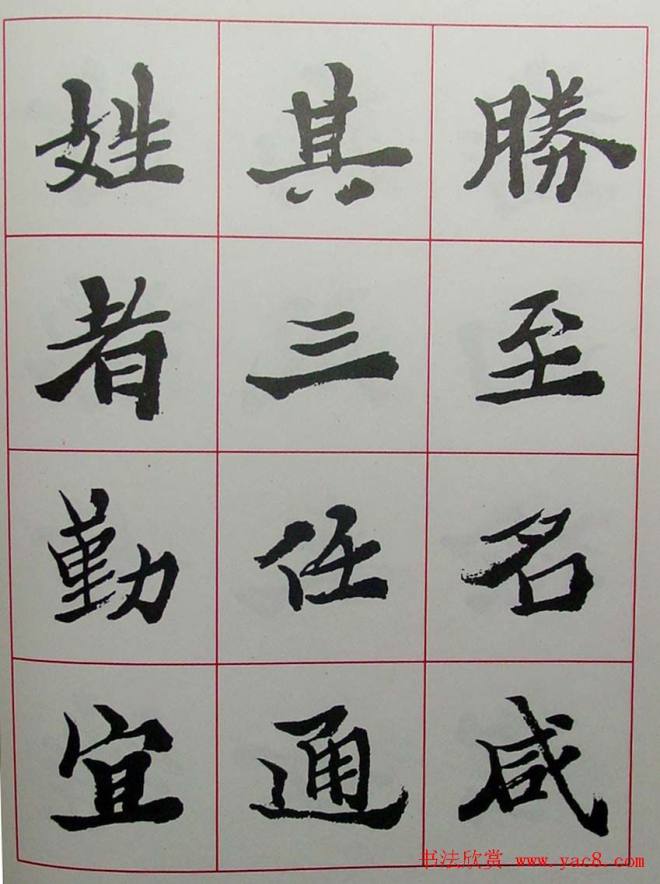 勝至名咸
其三任通
姓者勤宜
书法欣赏 www.yac8.com